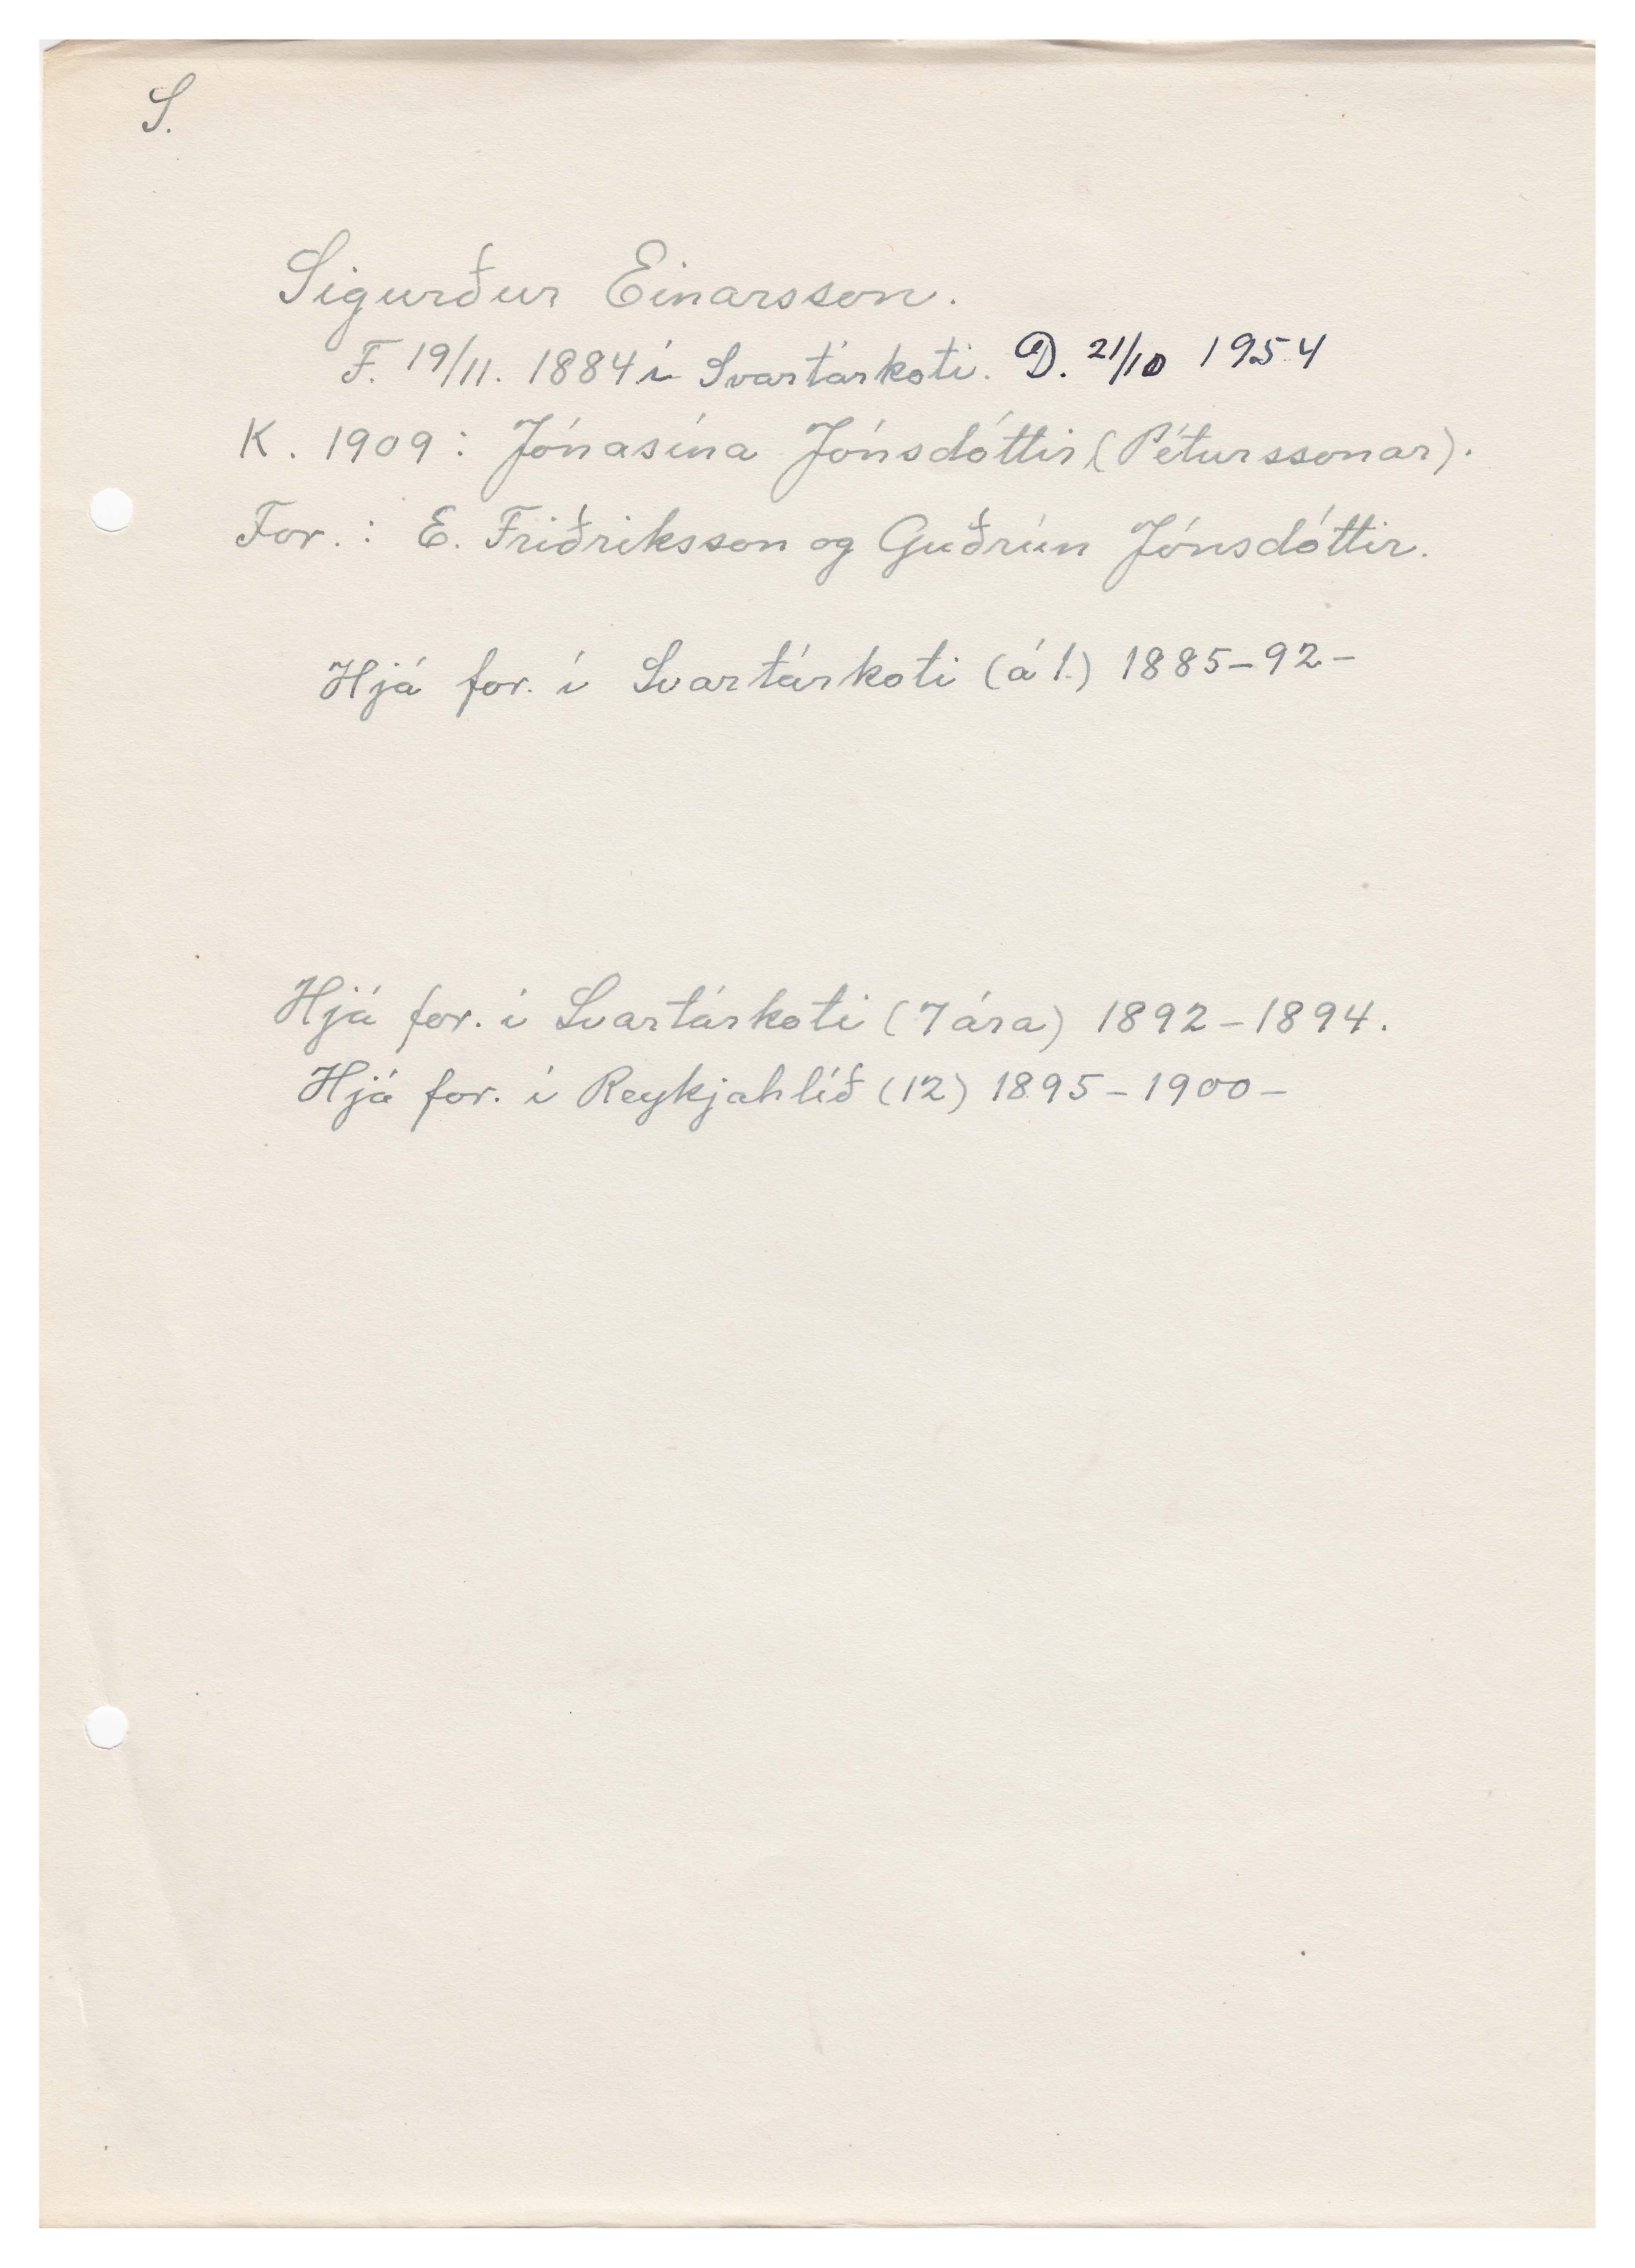 S.
Sigurður Einarsson.
F. 19/11. 1884 í Svartárkoti. D. 21/10 1954
K. 1909: Jónasína Jónsdóttir (Péturssonar).
For.: E. Friðriksson og Guðrún Jónsdóttir.
Hjá for. í Svartárkoti (á 1.) 1885-92-
Hjá for. í Svartárkoti (7 ára) 1892-1894.
Hjá for. í Reykjahlíð (12) 1895-1900-